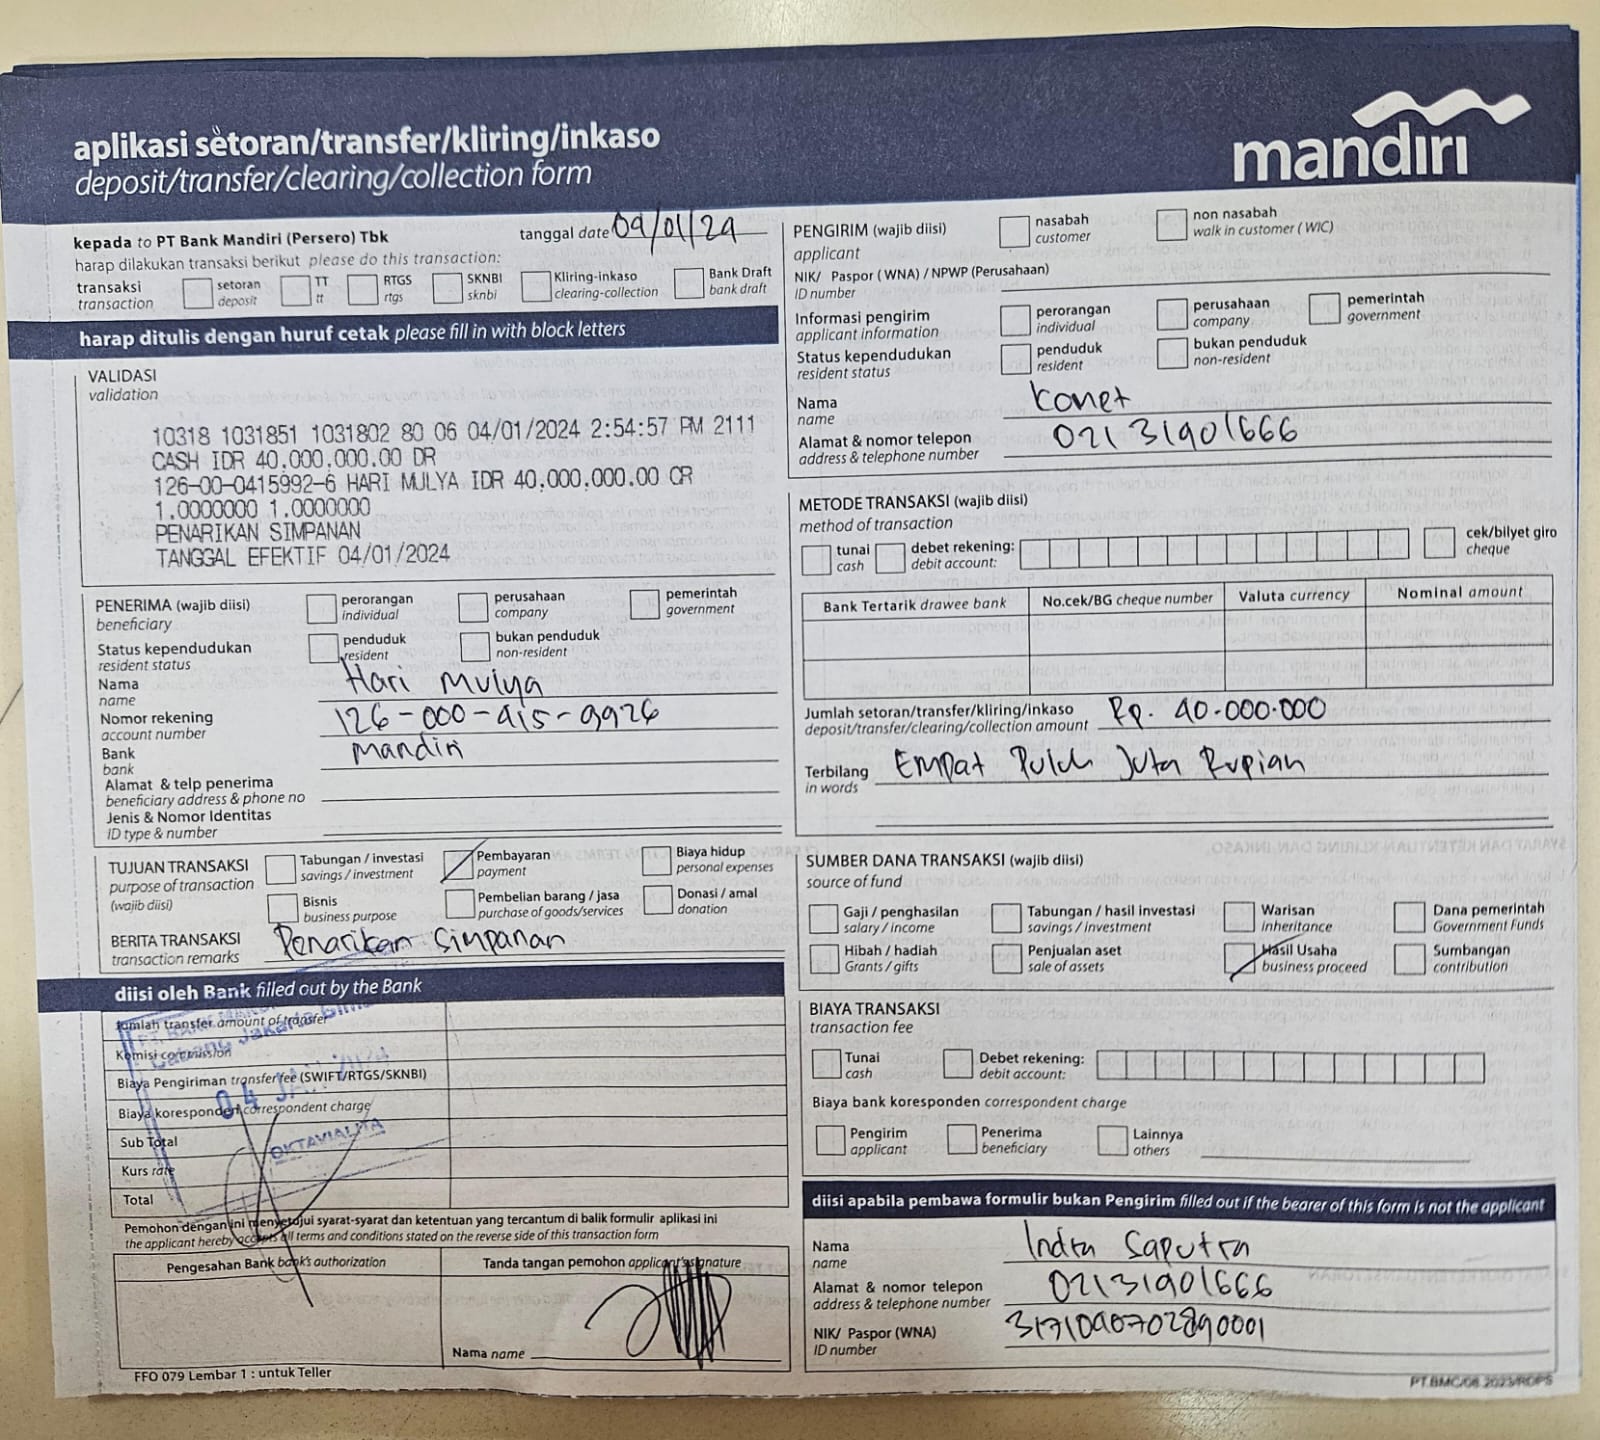 aplikasi setoran/transfer/kliring/inkaso
deposit/transfer/clearing/collection form
mandiri
kepada to PT Bank Mandiri (Persero) Tbk
tanggal date 04/01/24
harap dilakukan transaksi berikut please do this transaction:
transaksi transaction
setoran deposit
TT tt
RTGS rtgs
SKNBI sknbi
Kliring-inkaso clearing-collection
Bank Draft bank draft
harap ditulis dengan huruf cetak please fill in with block letters
VALIDASI
validation
10318 1031851 1031802 80 06 04/01/2024 2:54:57 PM 2111
CASH IDR 40,000,000.00 DR
126-00-0415992-6 HARI MULYA IDR 40,000,000.00 CR
1.0000000 1.0000000
PENARIKAN SIMPANAN
TANGGAL EFEKTIF 04/01/2024
PENERIMA (wajib diisi)
beneficiary
perorangan individual
perusahaan company
pemerintah government
Status kependudukan
resident status
penduduk resident
bukan penduduk non-resident
Nama
name
Hari Mulya
Nomor rekening
account number
126-000-415-9926
Bank
bank
Mandiri
Alamat & telp penerima
beneficiary address & phone no
Jenis & Nomor Identitas
ID type & number
TUJUAN TRANSAKSI
purpose of transaction
(wajib diisi)
Tabungan / investasi savings / investment
Pembayaran payment
Biaya hidup personal expenses
Bisnis business purpose
Pembelian barang / jasa purchase of goods/services
Donasi / amal donation
BERITA TRANSAKSI
transaction remarks
Penarikan Simpanan
diisi oleh Bank filled out by the Bank
Jumlah transfer amount of transfer
Komisi commission
Biaya Pengiriman transfer fee (SWIFT/RTGS/SKNBI)
Biaya koresponden correspondent charge
Sub Total
Kurs rate
Total
Cabang Jakarta
04 JAN 2024
OKTAVIALITA
Pemohon dengan ini menyetujui syarat-syarat dan ketentuan yang tercantum di balik formulir aplikasi ini
the applicant hereby accepts all terms and conditions stated on the reverse side of this transaction form
Pengesahan Bank bank's authorization
Tanda tangan pemohon applicant's signature
Nama name
FFO 079 Lembar 1 : untuk Teller
PENGIRIM (wajib diisi)
applicant
nasabah customer
non nasabah walk in customer ( WIC)
NIK/ Paspor ( WNA) / NPWP (Perusahaan)
ID number
Informasi pengirim
applicant information
perorangan individual
perusahaan company
pemerintah government
Status kependudukan
resident status
penduduk resident
bukan penduduk non-resident
Nama
name
Konet
Alamat & nomor telepon
address & telephone number
02131901666
METODE TRANSAKSI (wajib diisi)
method of transaction
tunai cash
debet rekening: debit account:
cek/bilyet giro cheque
Bank Tertarik drawee bank
No.cek/BG cheque number
Valuta currency
Nominal amount
Jumlah setoran/transfer/kliring/inkaso
deposit/transfer/clearing/collection amount
Rp. 40.000.000
Terbilang
in words
Empat Puluh Juta Rupiah
SUMBER DANA TRANSAKSI (wajib diisi)
source of fund
Gaji / penghasilan salary / income
Tabungan / hasil investasi savings / investment
Warisan inheritance
Dana pemerintah Government Funds
Hibah / hadiah Grants / gifts
Penjualan aset sale of assets
Hasil Usaha business proceed
Sumbangan contribution
BIAYA TRANSAKSI
transaction fee
Tunai cash
Debet rekening: debit account:
Biaya bank koresponden correspondent charge
Pengirim applicant
Penerima beneficiary
Lainnya others
diisi apabila pembawa formulir bukan Pengirim filled out if the bearer of this form is not the applicant
Nama
name
Indra Saputra
Alamat & nomor telepon
address & telephone number
02131901666
NIK/ Paspor (WNA)
ID number
3171090702890001
PT.BMC/08.2023/RDPS